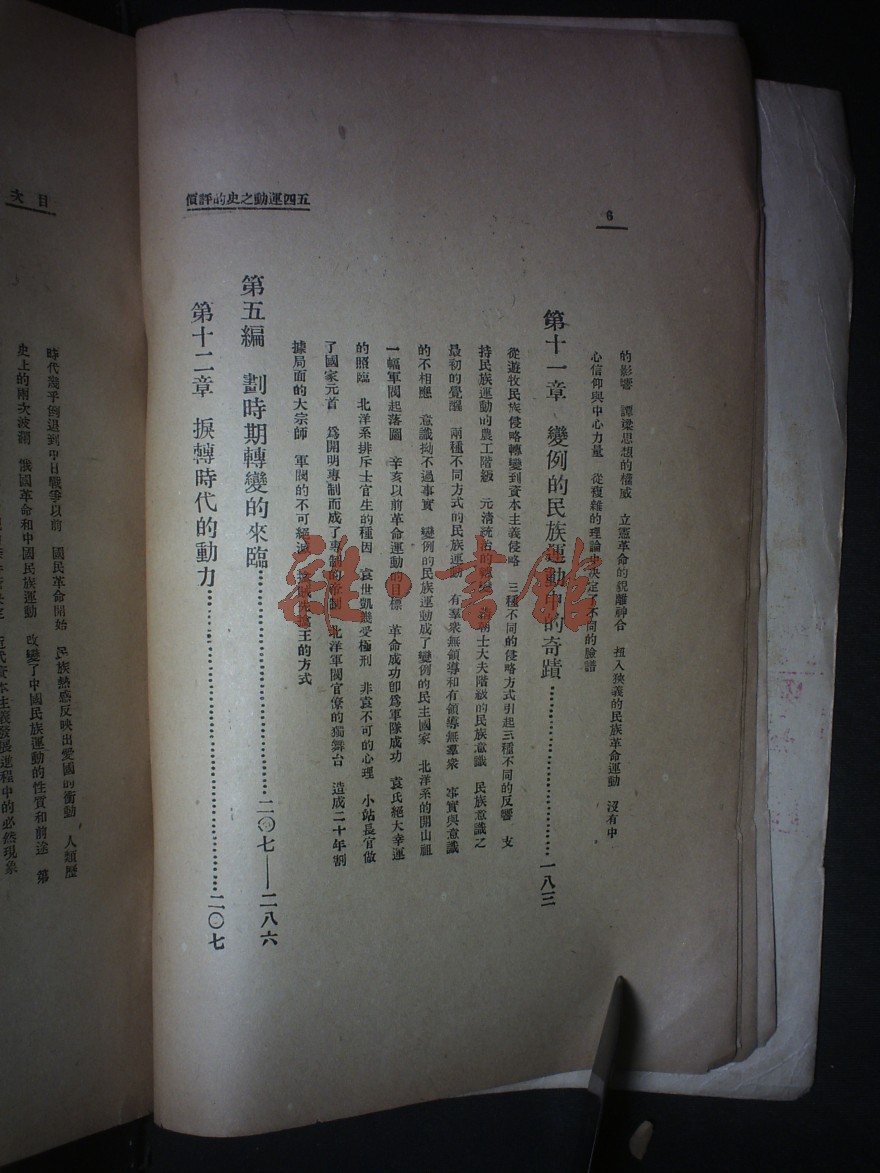 6
五四運動之史的評價
的影響 譚梁思想的權威 立憲革命的貌離神合 扭入狹義的民族革命運動 沒有中
心信仰與中心力量 從複雜的理論中決定了不同的臉譜
第十一章 變例的民族運動中的奇蹟…………一八三
從遊牧民族侵略轉變到資本主義侵略 三種不同的侵略方式引起三種不同的反響 支
持民族運動的農工階級 元清統治的轉變 落朝士大夫階級的民族意識 民族意識之
最初的覺醒 兩種不同方式的民族運動 有羣衆無領導和有領導無羣衆 事實與意識
的不相應 意識拗不過事實 變例的民族運動成了變例的民主國家 北洋系的開山祖
一幅軍閥起落圖 辛亥以前革命運動的目標 革命成功卽爲軍隊成功 袁氏絕大幸運
的照臨 北洋系排斥士官生的種因 袁世凱幾受極刑 非袁不可的心理 小站長官做
了國家元首 爲開明專制而成了專制的帝制 北洋軍閥官僚的獨舞台 造成二十年割
據局面的大宗師 軍閥的不可絕滅 王的方式
第五編 劃時期轉變的來臨…………二〇七——二八六
第十二章 捩轉時代的動力…………二〇七
目次
時代幾乎倒退到中日戰爭以前 國民革命開始 民族熱感反映出愛國的衝動 人類歷
史上的兩次波瀾 俄國革命和中國民族運動 改變了中國民族運動的性質和前途 第
近代資本主義發展進程中的必然現象
雜·書館